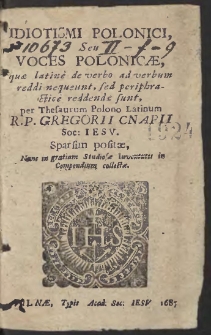 IDIOTISMI POLONICI,
10673 Seu II-7-9
VOCES POLONICÆ,
quæ latinè de verbo ad verbum
reddi nequeunt, sed periphra-
sticè reddendæ sunt,
per Thesaurum Polono Latinum
R.P. GREGORII CNAPII
Soc: IESV. 1924
Sparsim positæ,
Nunc in gratiam Studiosæ Iuventutis in
Compendium collectæ.
IHS
VILNÆ, Typis Acad. Soc: IESV 1687